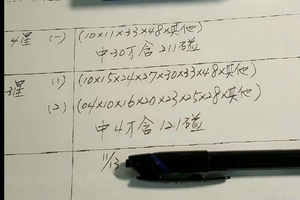 4星 (一) (10×11×33×48×其他)
中30不含211碰
3星 (1) (10×15×24×27×30×33×48×其他)
(2) (04×10×16×20×23×25×28×其他)
中4不含121碰
11/13